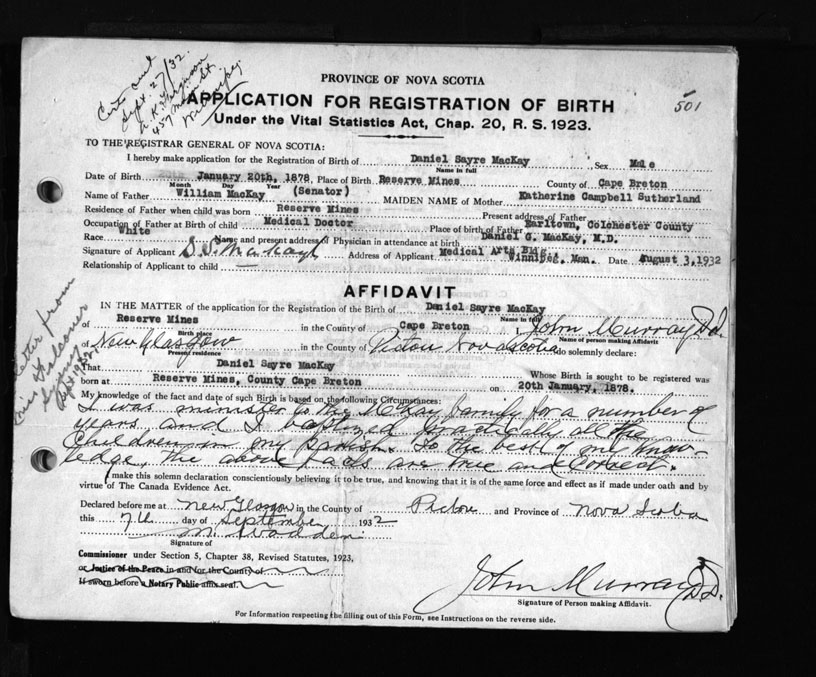 Sept. 27/32.
PROVINCE OF NOVA SCOTIA
APPLICATION FOR REGISTRATION OF BIRTH
501
Under the Vital Statistics Act, Chap. 20, R. S. 1923.
TO THE REGISTRAR GENERAL OF NOVA SCOTIA:
I hereby make application for the Registration of Birth of Daniel Sayre MacKay Sex Male
Name in full
Date of Birth January 20th, 1878, Place of Birth Reserve Mines County of Cape Breton
Month Day Year
Name of Father William MacKay (Senator) MAIDEN NAME of Mother Katherine Campbell Sutherland
Residence of Father when child was born Reserve Mines Present address of Father
Occupation of Father at Birth of child Medical Doctor Place of birth of Father Earltown, Colchester County
Race White Name and present address of Physician in attendance at birth Daniel G. MacKay, M.D.
Signature of Applicant Address of Applicant Medical Arts Bldg., Winnipeg, Man. Date August 3, 1932
Relationship of Applicant to child
AFFIDAVIT
IN THE MATTER of the application for the Registration of the Birth of Daniel Sayre MacKay
Name in full
of Reserve Mines in the County of Cape Breton N. I, John Murray D.D.
Birth place Name of person making Affidavit
of New Glasgow in the County of Pictou Nova Scotia do solemnly declare:
Present residence
That Daniel Sayre MacKay Whose Birth is sought to be registered was
born at Reserve Mines, County Cape Breton on 20th January, 1878.
My knowledge of the fact and date of such Birth is based on the following Circumstances:
I was minister to the McKay family for a number of
years, and I baptized practically all the
Children in my parish. To the best of my know-
ledge, the above facts are true and correct.
I make this solemn declaration conscientiously believing it to be true, and knowing that it is of the same force and effect as if made under oath and by
virtue of The Canada Evidence Act.
Declared before me at New Glasgow in the County of Pictou and Province of Nova Scotia
this 7th day of September 1932
Signature of
Commissioner under Section 5, Chapter 38, Revised Statutes, 1923,
or Justice of the Peace in and for the County of
If sworn before a Notary Public affix seal.
John Murray D.D.
Signature of Person making Affidavit.
For Information respecting the filling out of this Form, see Instructions on the reverse side.